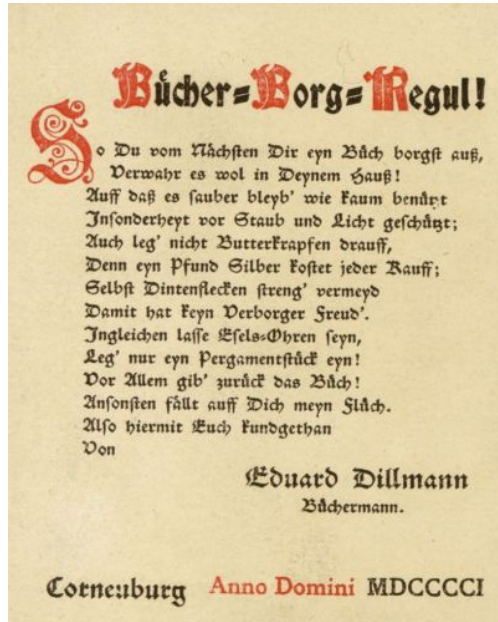 Bücher=Borg=Regul!
So Du vom Nächsten Dir eyn Bůch borgſt auß,
Verwahr es wol in Deynem Hauß!
Auff daß es ſauber bleyb' wie kaum benützt
Inſonderheyt vor Staub und Licht geſchützt;
Auch leg' nicht Butterkrapfen drauff,
Denn eyn Pfund Silber koſtet jeder Kauff;
Selbſt Dintenflecken ſtreng' vermeyd
Damit hat keyn Verborger Freud'.
Ingleichen laſſe Eſels=Ohren ſeyn,
Leg' nur eyn Pergamentſtück eyn!
Vor Allem gib' zurück das Bůch!
Anſonſten fällt auff Dich meyn Flůch.
Alſo hiermit Euch kundgethan
Von
Eduard Dillmann
Büchermann.
Corneuburg Anno Domini MDCCCCI